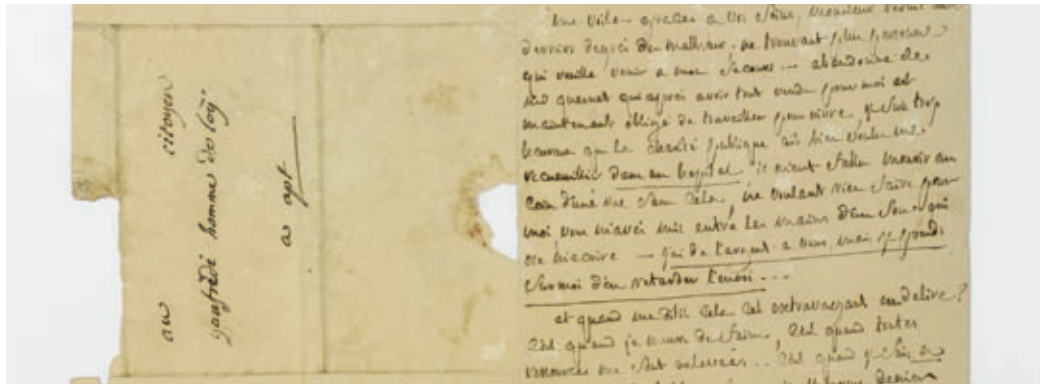 au citoyen
gaufridi homme de loy
a apt
me voila graces a vos soins, monsieur reduit au
dernier degré du malheur. ne trouvant plus personne
qui veuille venir a mon secours --- abandonné de
md quesnet qui apres avoir tout vendu pour moi est
maintenant obligé de travailler pour vivre, je suis trop
heureux que la charité publique ait bien voulu me
recueillir dans un hopital il m'eut fallu mourir au
coin d'une rue sans cela, ne voulant rien faire pour
moi vous m'avez mis entre les mains d'un qui
ose m'ecrire — j'ai de l'argent a vous, mais je prends
sur moi d'en retarder l'envoi - - -
et quand me dit il cela cet extravagant en delire?
c'est quand je meurs de faim, c'est quand toutes
ressources me sont enlevées .. c'est quand je suis